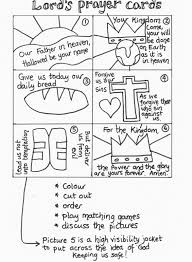 Lord's prayer cards
1
Our Father in heaven,
Hallowed be your name
2
Your Kingdom
come, your
will be
done on
Earth as
it is
in heaven
3
Give us today our
daily bread
4
Forgive
us
our
sins
As we
forgive
those who
sin
against
us.
5
Lead us not
into
temptation
But deliver
us from
evil
6
For the Kingdom,
the Power and the glory
are yours forever! Amen.
* Colour
* cut out
* order
* play matching games
* discuss the pictures
Picture 5 is a high visibility jacket
to put across the idea of God
Keeping us safe!